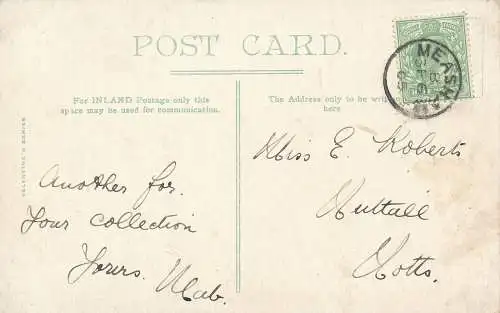 POST CARD.
For INLAND Postage only this
space may be used for communication.
The Address only to be
here
VALENTINE'S SERIES
Another for
Your Collection
Yours. Mab.
Miss E. Roberts
Nuttall
Notts.